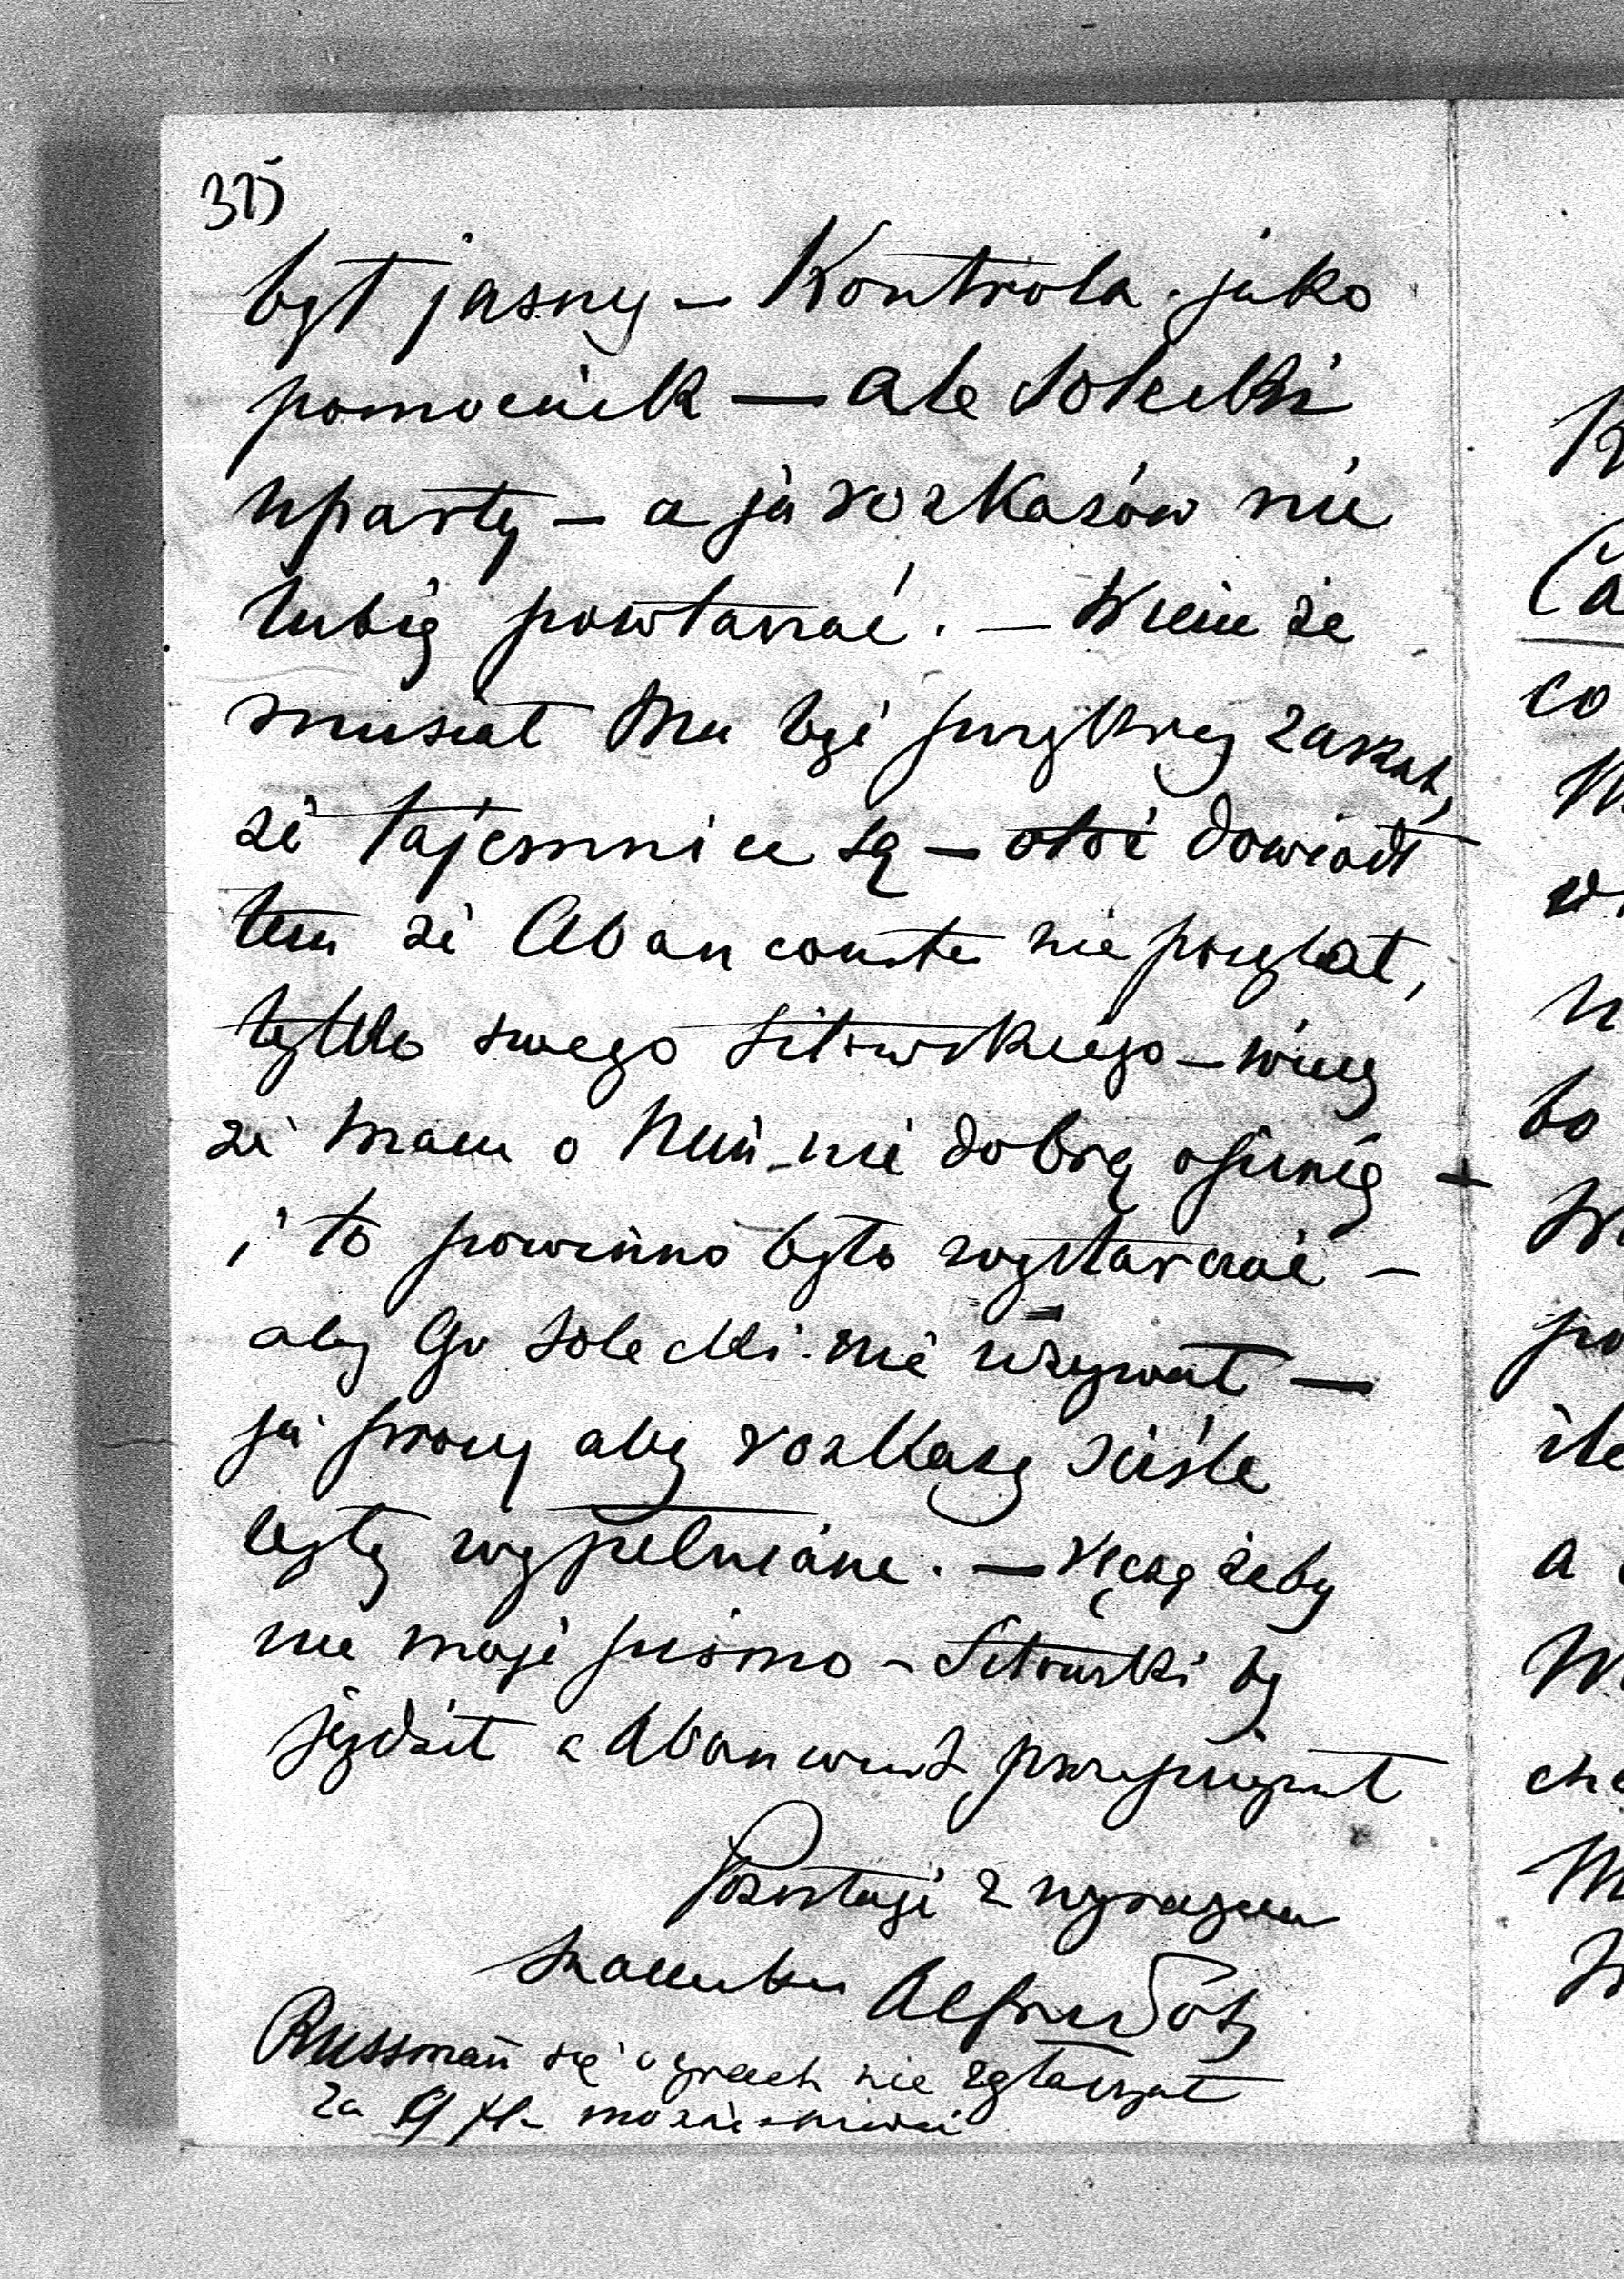 375
był jasny – Kontrola jako
pomocnik — ale Solecki
uparty – a ja rozkazów nie
lubię powtarzać. – Wiem że
musiał Mu być przykry zakaz,
że tajemnice są – otóż dowiadł
tem że Abancourta nie posyłał,
tylko swego Sitowskiego – wiecej
że mam o Nim nie dobrą opinię –
i to powinno było wystarczać –
aby Go Solecki nie używał —
ja proszę aby rozkazy ściśle
były wypełniane. — Ręczę żeby
nie moje pismo – Sitowski by
jeździł a Abancourt przepisywał
Pozostaję z wyrazem
szacunku Alfred Poto
Russman się o grach nie zgłaszał
za